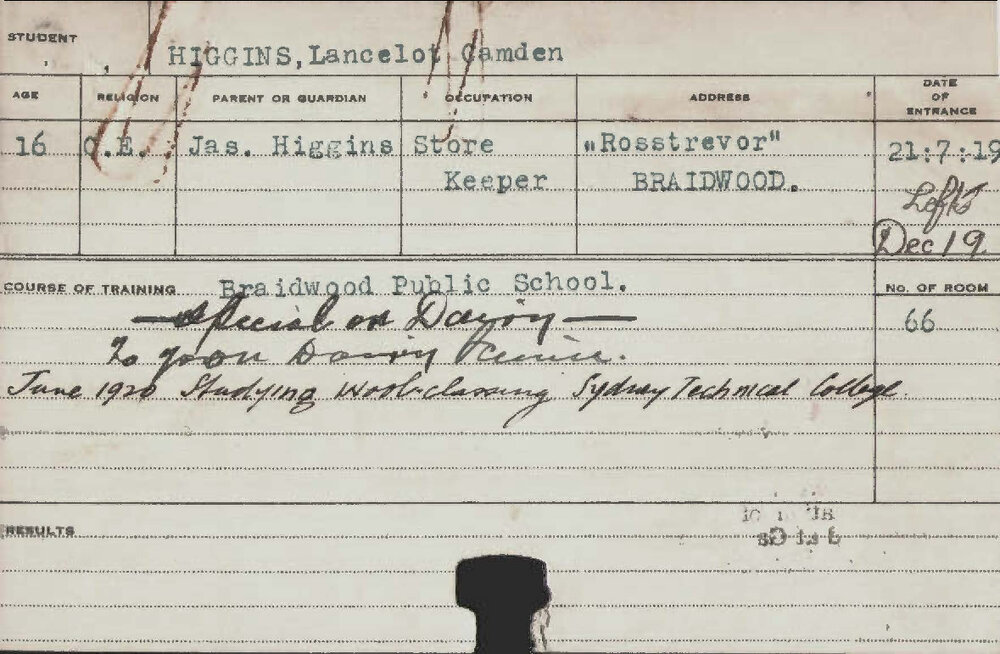 STUDENT
HIGGINS, Lancelot Camden
AGE RELIGION PARENT OR GUARDIAN OCCUPATION ADDRESS DATE OF ENTRANCE
16 C.E. Jas. Higgins Store "Rosstrevor" 21:7:19
Keeper BRAIDWOOD.
Left
Dec 19
COURSE OF TRAINING Braidwood Public School. No. OF ROOM
— special on Dairy — 66
To join Dairy
June 1920 Studying Wool-classing Sydney Technical College
RESULTS